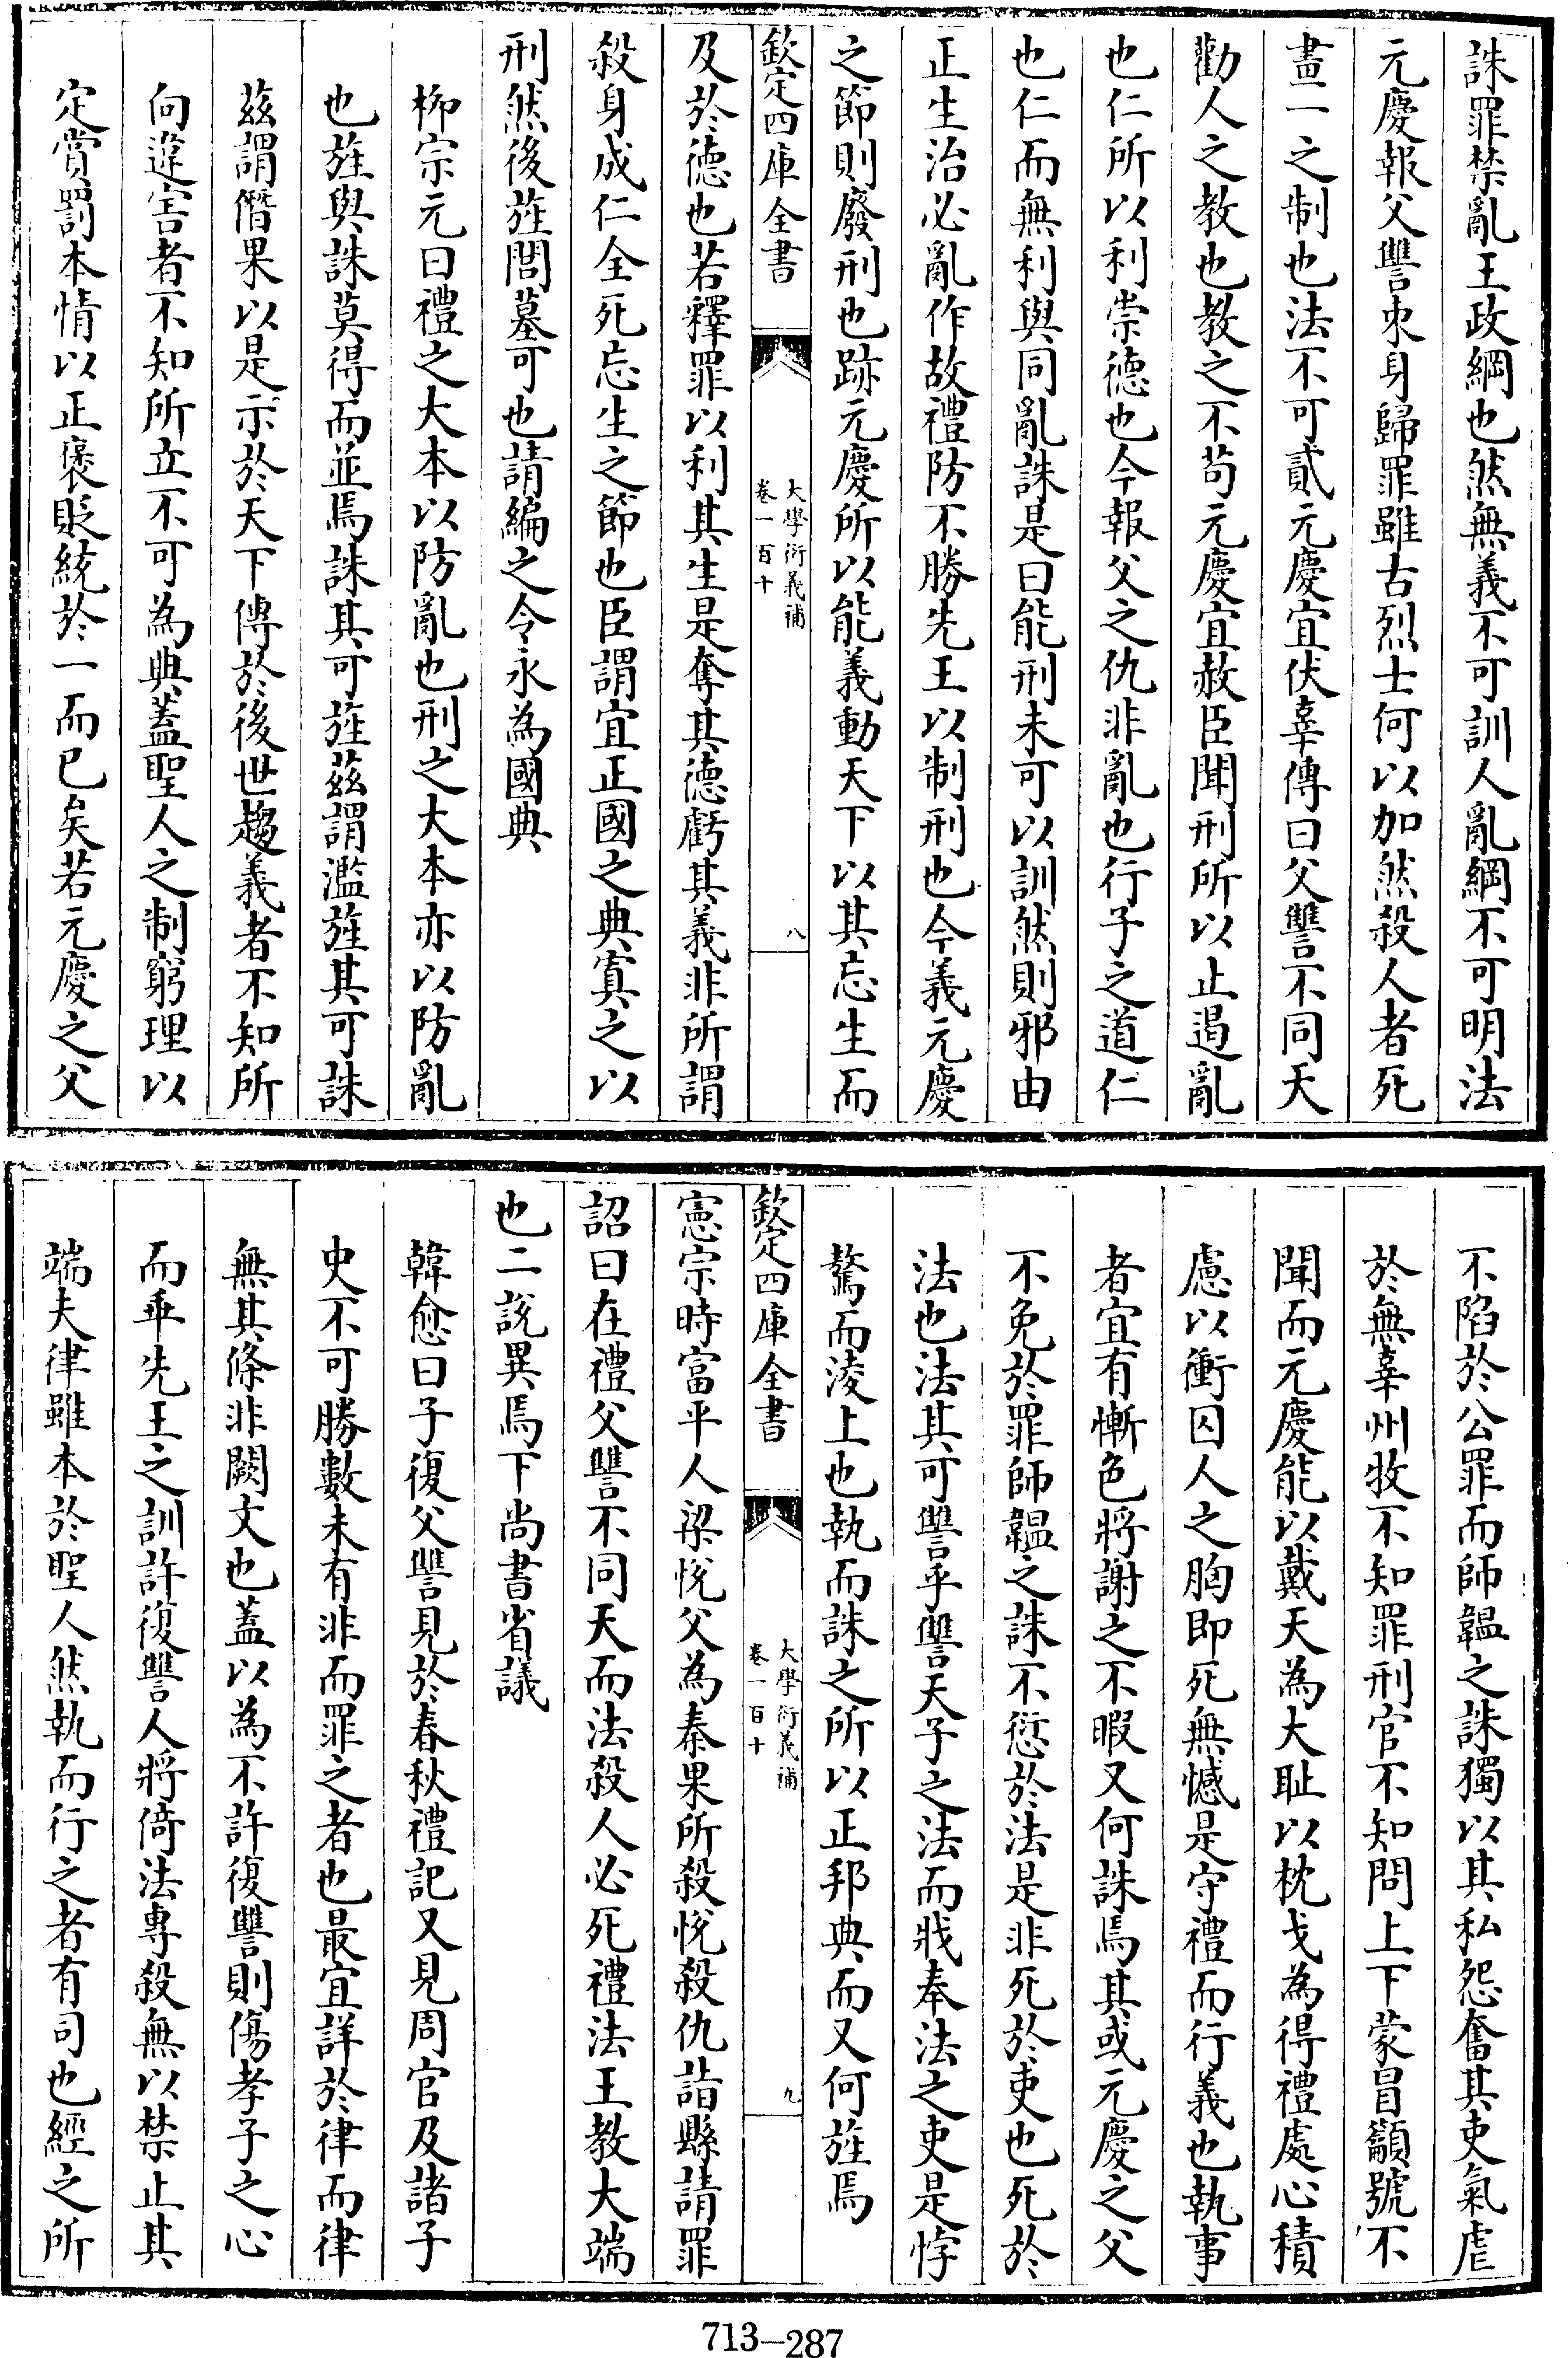 誅罪禁亂王政綱也然無義不可訓人亂綱不可明法
元慶報父讐束身歸罪雖古烈士何以加然殺人者死
畫一之制也法不可貳元慶宜伏辜傳曰父讐不同天
勸人之教也教之不苟元慶宜赦臣聞刑所以止遏亂
也仁所以利崇德也今報父之仇非亂也行子之道仁
也仁而無利與同亂誅是曰能刑未可以訓然則邪由
正生治必亂作故禮防不勝先王以制刑也今義元慶
之節則廢刑也跡元慶所以能義動天下以其忘生而
欽定四庫全書
大學衍義補
卷一百十
八
及於德也若釋罪以利其生是奪其德虧其義非所謂
殺身成仁全死忘生之節也臣謂宜正國之典寘之以
刑然後旌閭墓可也請編之令永為國典
柳宗元曰禮之大本以防亂也刑之大本亦以防亂
也旌與誅莫得而並焉誅其可旌茲謂濫旌其可誅
茲謂僭果以是示於天下傳於後世趨義者不知所
向違害者不知所立不可為典蓋聖人之制窮理以
定賞罰本情以正褒貶統於一而已矣若元慶之父
不陷於公罪而師韞之誅獨以其私怨奮其吏氣虐
於無辜州牧不知罪刑官不知問上下蒙冒籲號不
聞而元慶能以戴天為大耻以枕戈為得禮處心積
慮以衝囚人之胸即死無憾是守禮而行義也執事
者宜有慚色將謝之不暇又何誅焉其或元慶之父
不免於罪師韞之誅不愆於法是非死於吏也死於
法也法其可讐乎讐天子之法而戕奉法之吏是悖
驁而淩上也執而誅之所以正邦典而又何旌焉
欽定四庫全書
大學衍義補
卷一百十
九
憲宗時富平人梁悅父為秦果所殺悅殺仇詣縣請罪
詔曰在禮父讐不同天而法殺人必死禮法王教大端
也二説異焉下尚書省議
韓愈曰子復父讐見於春秋禮記又見周官及諸子
史不可勝數未有非而罪之者也最宜詳於律而律
無其條非闕文也蓋以為不許復讐則傷孝子之心
而乖先王之訓許復讐人將倚法專殺無以禁止其
端夫律雖本於聖人然執而行之者有司也經之所
713-287